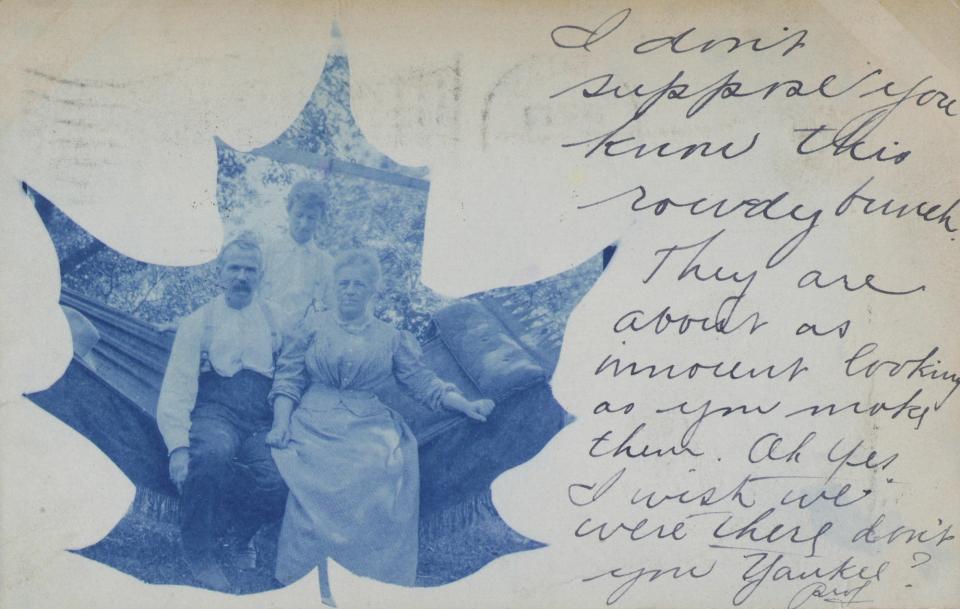 I don't
suppose you
know this
rowdy bunch.
They are
about as
innocent looking
as you make
them. Oh Yes
I wish we
were there don't
you Yankee?